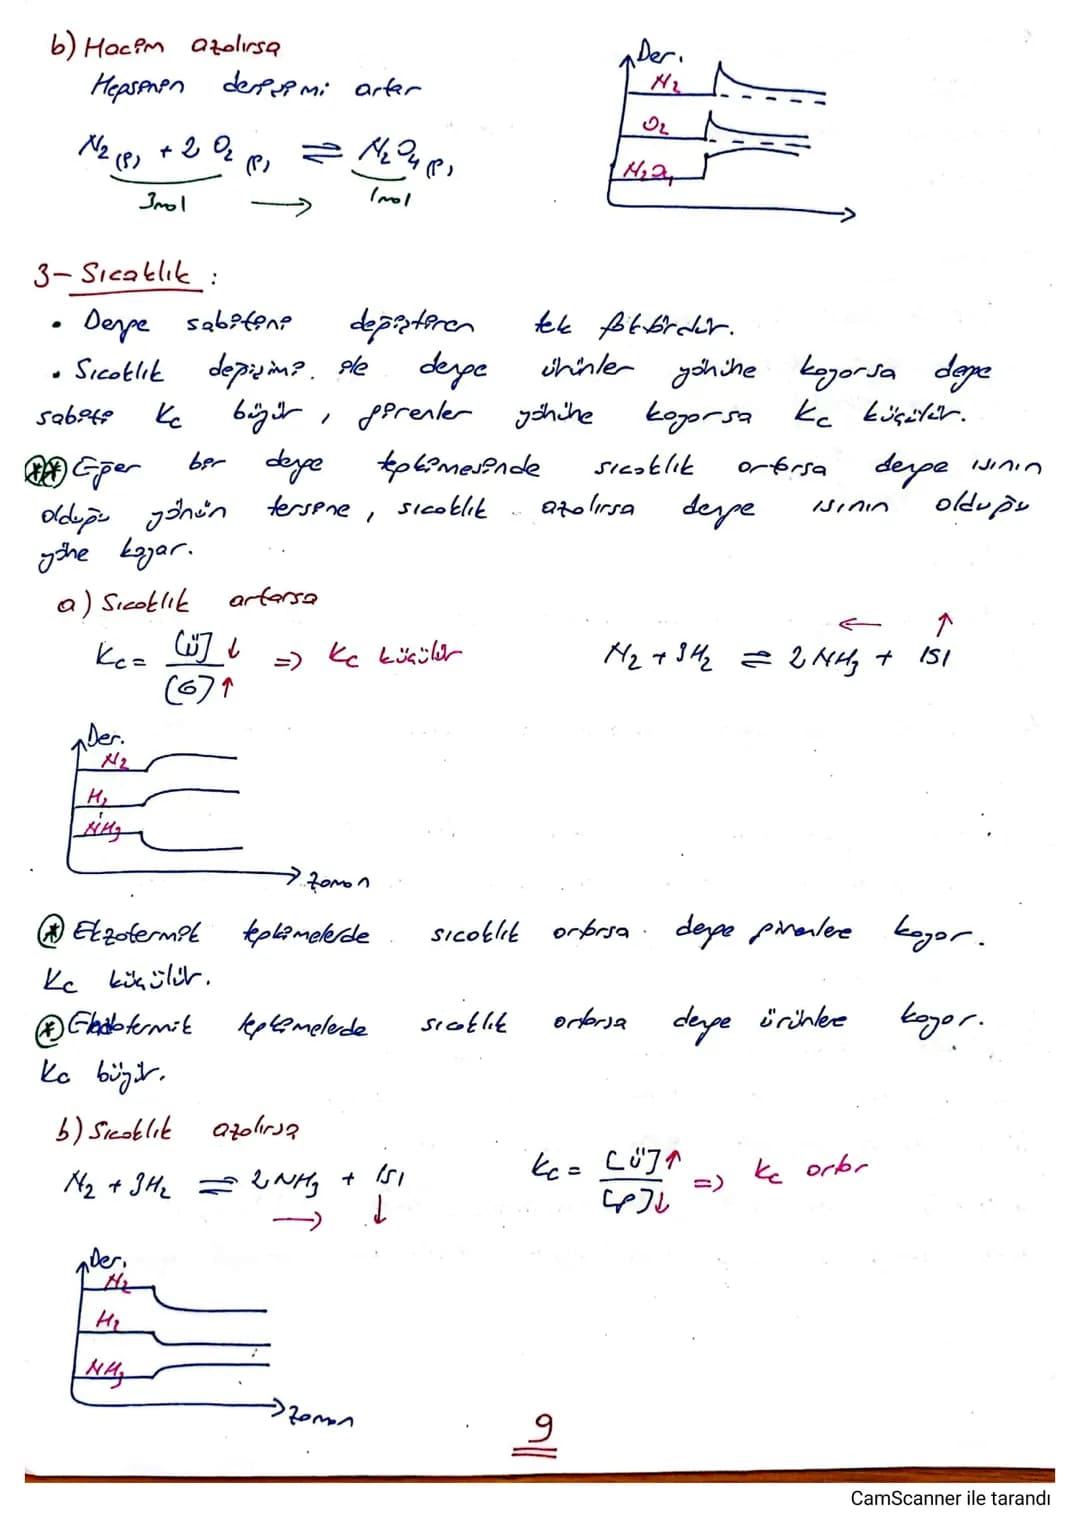 b) Hacim azalırsa
Hepsinin derişimi artar
N₂(g) + 2 O₂(g) ⇌ N₂O₄(g)
3mol → 1mol
Der.
N₂
O₂
N₂O₄
3- Sıcaklık :
• Denge sabitini değiştiren tek faktördür.
• Sıcaklık değişimi ile denge ürünler yönüne kayarsa denge
sabiti Kc büyür, girenler yönüne kayarsa Kc küçülür.
** Eğer bir denge tepkimesinde sıcaklık artırsa denge ısının
olduğu yönün tersine, sıcaklık azalırsa denge ısının olduğu
yöne kayar.
a) Sıcaklık artarsa
Kc = [Ü]↓ / [G]↑ => Kc küçülür
N₂ + 3H₂ ⇌ 2NH₃ + ısı
← ↑
Der.
N₂
H₂
NH₃
zaman
* Ekzotermik tepkimelerde sıcaklık artırsa denge girenlere kayar.
Kc küçülür.
* Endotermik tepkimelerde sıcaklık artarsa denge ürünlere kayar.
Kc büyür.
b) Sıcaklık azalırsa
N₂ + 3H₂ ⇌ 2NH₃ + ısı
→ ↓
Kc = [Ü]↑ / [g]↓ => Kc artar
Der.
N₂
H₂
NH₃
zaman
9
CamScanner ile tarandı